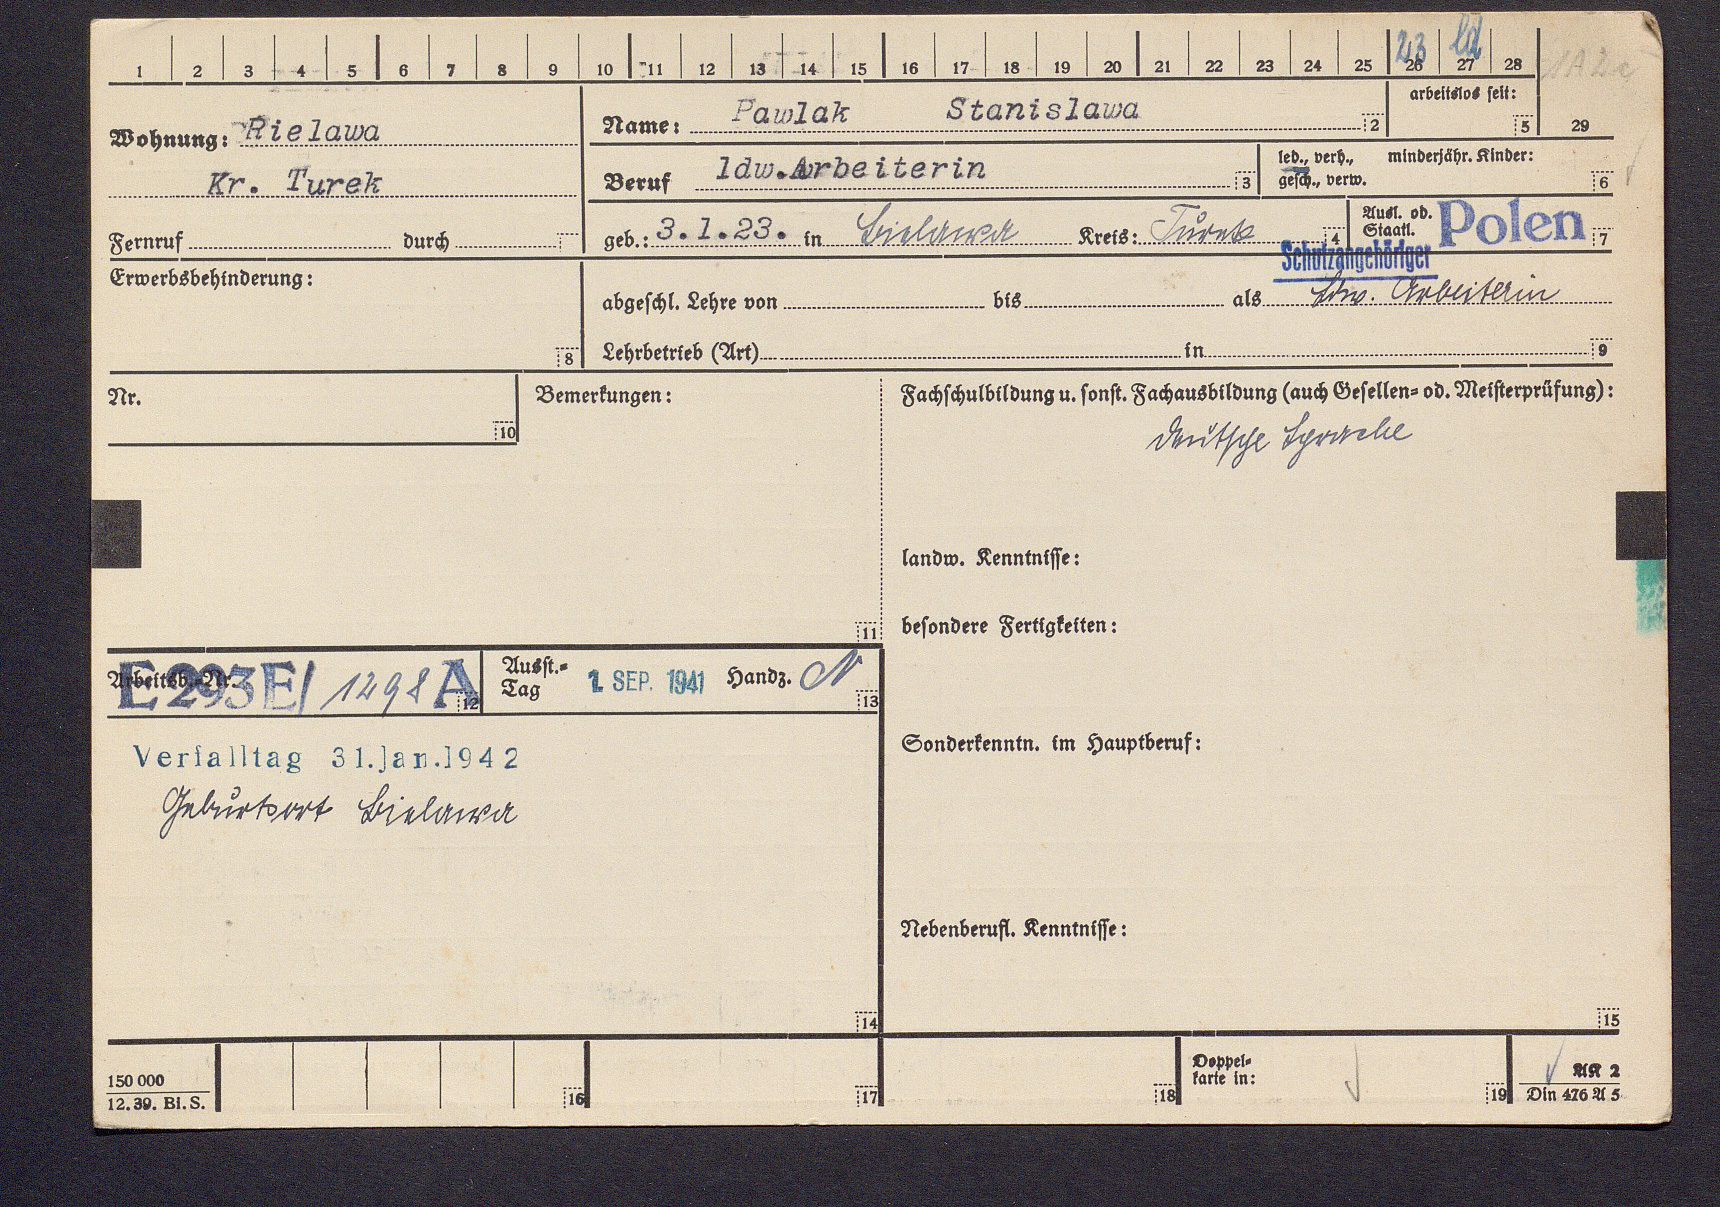 1 2 3 4 5 6 7 8 9 10 11 12 13 14 15 16 17 18 19 20 21 22 23 24 25 26 27 28
23 ld
Wohnung: Rielawa
Kr. Turek
Fernruf durch
Name: Pawlak Stanislawa 2
arbeitslos seit: 5
29
Beruf ldw. Arbeiterin 3
led., verh., minderjähr. Kinder:
gesch., verw. 6
geb.: 3.1.23. in Bielawa Kreis: Turek 4
Ausl. od. Staatl. Polen 7
Schutzangehöriger
Erwerbsbehinderung:
8
abgeschl. Lehre von bis als ldw. Arbeiterin
Lehrbetrieb (Art) in 9
Nr.
10
Bemerkungen:
11
Fachschulbildung u. sonst. Fachausbildung (auch Gesellen- od. Meisterprüfung):
deutsche Sprache
landw. Kenntnisse:
besondere Fertigkeiten:
Arbeitsb.-Nr. E 293E/ 1298 A 12
Ausst.-Tag 1. SEP. 1941 Handz. N 13
Verfalltag 31.Jan.1942
Geburtsort Bielawa
14
Sonderkenntn. im Hauptberuf:
Nebenberufl. Kenntnisse:
15
150 000
12. 39. Bl. S.
16
17
18
Doppel-
karte in:
19
AK 2
Din 476 A 5